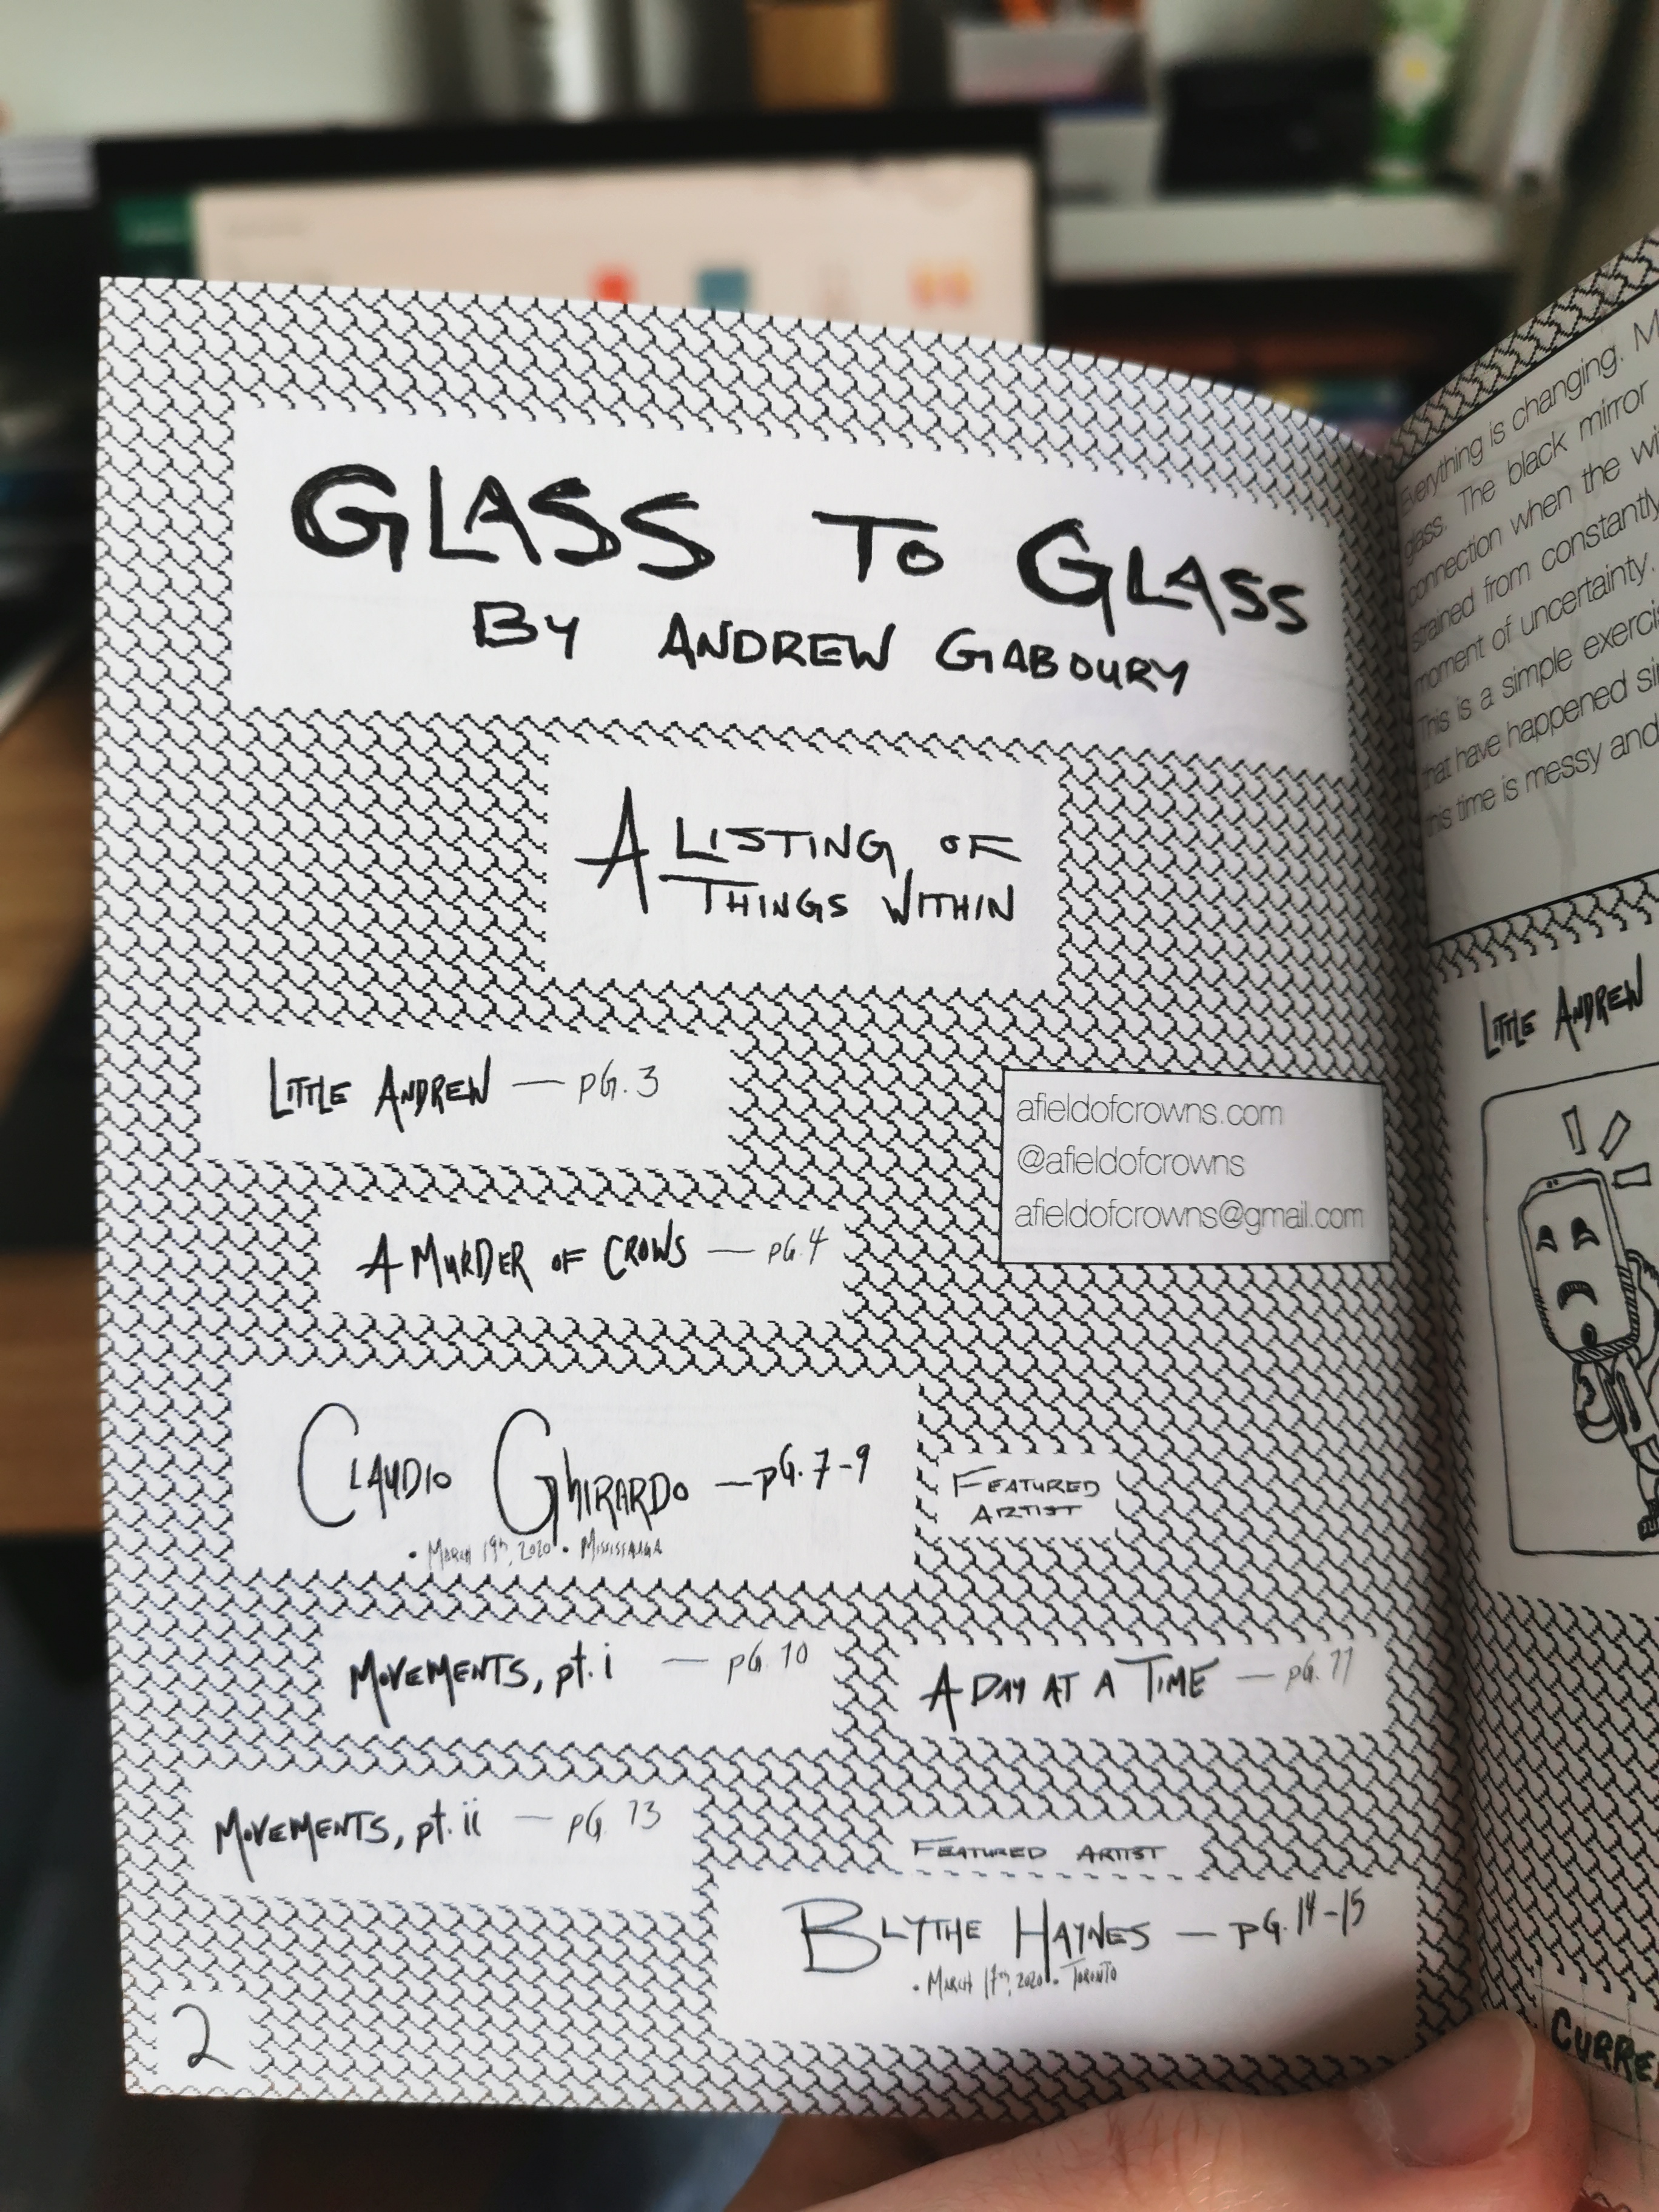 GLASS TO GLASS
BY ANDREW GABOURY
A LISTING OF
THINGS WITHIN
LITTLE ANDREW — pG. 3
afieldofcrowns.com
@afieldofcrowns
afieldofcrowns@gmail.com
A MURDER OF CROWS — pG. 4
CLAUDIO GhIRARDO — pG. 7-9
• MARCH 19th, 2020 • MISSISSAUGA
FEATURED
ARTIST
MOVEMENTS, pt. i — pG. 10
A DAY AT A TIME — pG. 11
MOVEMENTS, pt. ii — pG. 13
FEATURED ARTIST
BLYTHE HAYNES — pG. 14-15
• MARCH 17th, 2020 • TORONTO
2
Everything is changing. M
glass. The black mirror
connection when the wi
strained from constantly
moment of uncertainty.
This is a simple exercis
that have happened sin
this time is messy and
LITTLE ANDREW
CURRE